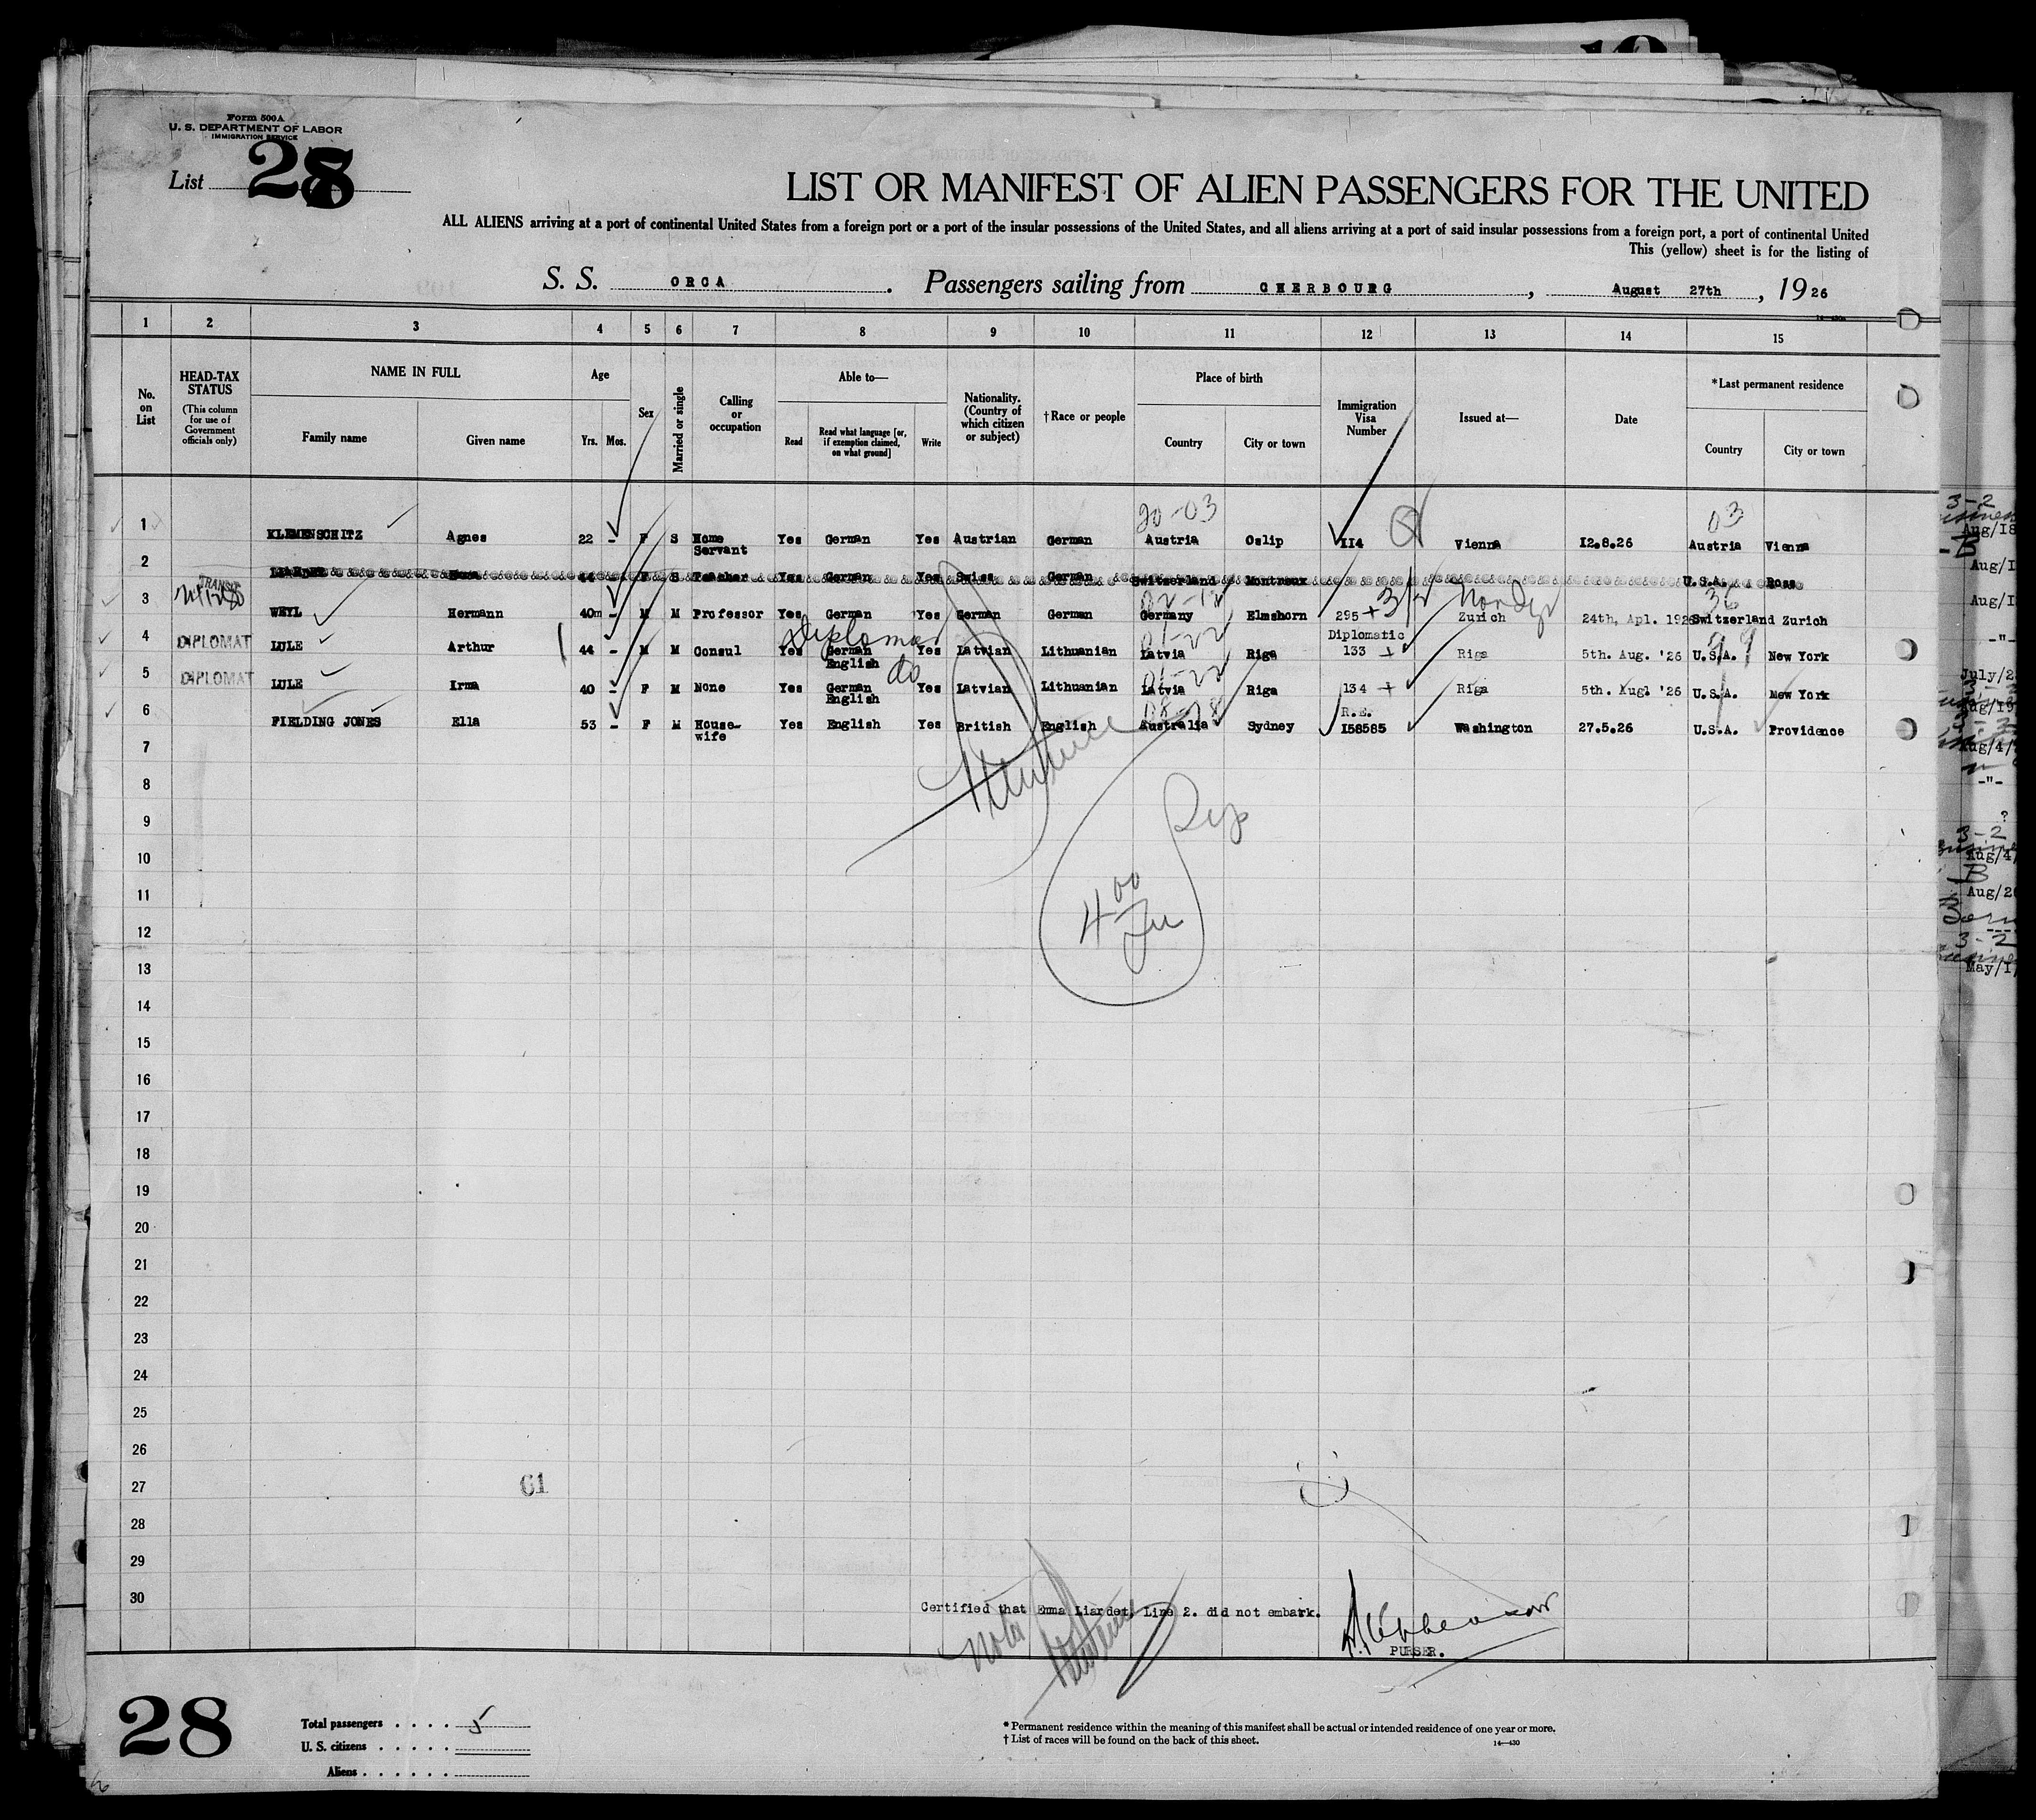 Form 500A
U. S. DEPARTMENT OF LABOR
IMMIGRATION SERVICE
List 28
LIST OR MANIFEST OF ALIEN PASSENGERS FOR THE UNITED
ALL ALIENS arriving at a port of continental United States from a foreign port or a port of the insular possessions of the United States, and all aliens arriving at a port of said insular possessions from a foreign port, a port of continental United
This (yellow) sheet is for the listing of
S. S. ORCA. Passengers sailing from CHERBOURG, August 27th, 1926
1 2 3 4 5 6 7 8 9 10 11 12 13 14 15
No. on List
HEAD-TAX STATUS (This column for use of Government officials only)
NAME IN FULL
Family name Given name
Age
Yrs. Mos.
Sex
Married or single
Calling or occupation
Able to—
Read Read what language [or, if exemption claimed, on what ground] Write
Nationality. (Country of which citizen or subject)
†Race or people
Place of birth
Country City or town
Immigration Visa Number
Issued at—
Date
*Last permanent residence
Country City or town
20-03 03
1 KLEMENSCHITZ Agnes 22 - F S Home Servant Yes German Yes Austrian German Austria Oslip 114 Vienna 12.8.26 Austria Vienna
2 LIARDET Emma 44 - F S Teacher Yes German Yes Swiss German Switzerland Montreux U.S.A. Ross
TRANSIT
3 WEYL Hermann 40m - M M Professor Yes German Yes German German Germany Elmshorn 295 + 3/2 Zurich 24th, Apl. 1926 Switzerland Zurich
Diplomat
4 DIPLOMAT LULE Arthur 44 - M M Consul Yes German English Yes Latvian Lithuanian Latvia Riga Diplomatic 133 + Riga 5th. Aug. '26 U.S.A. New York
do
5 DIPLOMAT LULE Irma 40 - F M None Yes German English Yes Latvian Lithuanian Latvia Riga 134 + Riga 5th. Augl '26 U.S.A. New York
6 FIELDING JONES Ella 53 - F M House-wife Yes English Yes British English Australia Sydney R.E. 158585 Washington 27.5.26 U.S.A. Providence
7
8
9
10
11
12
13
14
15
16
17
18
19
20
21
22
23
24
25
26
27
28
29
30
61
Certified that Emma Liardet, Line 2. did not embark.
PURSER.
28
Total passengers . . . . 5
U. S. citizens . . . . .
Aliens . . . . . .
* Permanent residence within the meaning of this manifest shall be actual or intended residence of one year or more.
† List of races will be found on the back of this sheet.
14—430